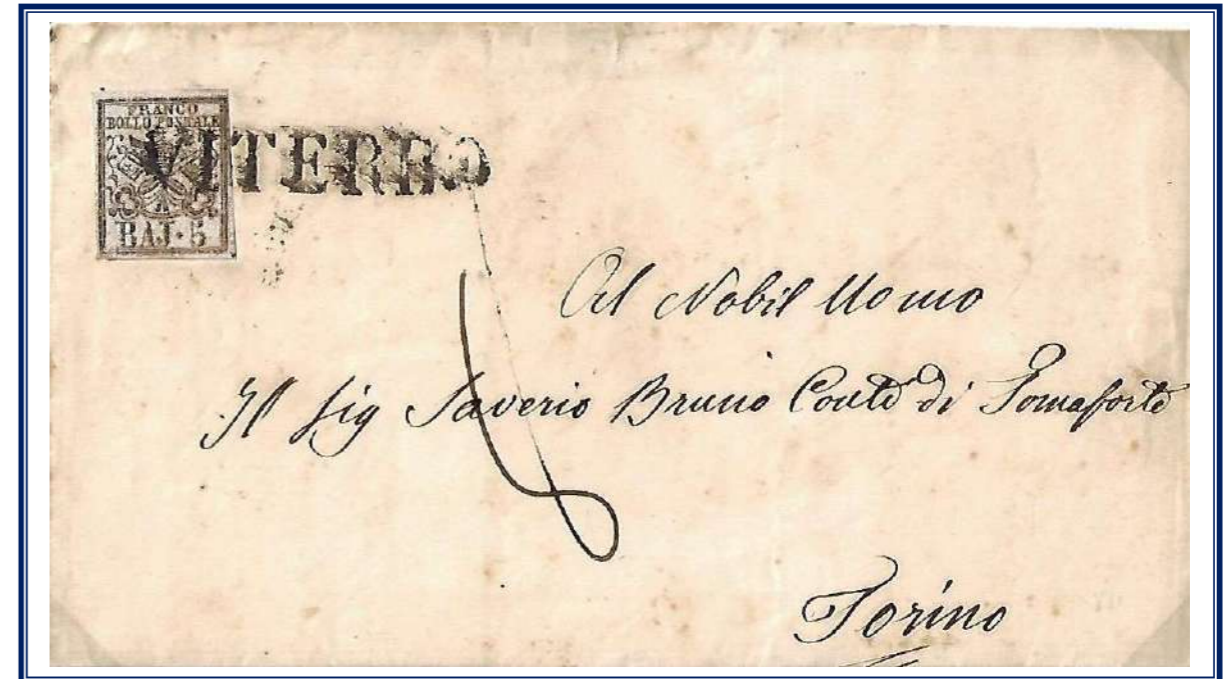 FRANCO
BOLLO POSTALE
BAJ·5
VITERBO
Al Nobil Uomo
Il Sig Saverio Bruno Conte di Tornaforte
Torino